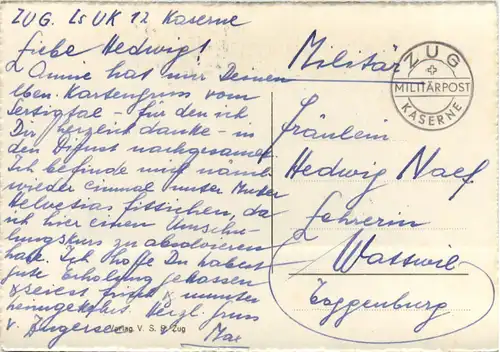 ZUG. Ls UK 12 Kaserne
Liebe Hedwig!
Annie hat mir Deinen
lben. Kartengruss vom
Sertigtal - für den ich
Dir herzlich danke - in
den Dienst nachgesandt.
Ich befinde mich näml.
wieder einmal unter Mutter
Helvetias Fittichen, da
ich hier einen Umschu-
lungskurs zu absolvieren
habe. Ich hoffe Du habest
gute Erholung genossen
& seiest frisch & munter
heimgekehrt. Herzl. Gruss
v. Zugersee
Max
Verlag V. S. P. Zug
Militär
ZUG
MILITÄRPOST
KASERNE
Fräulein
Hedwig Naef
Lehrerin
Wattwil
Toggenburg